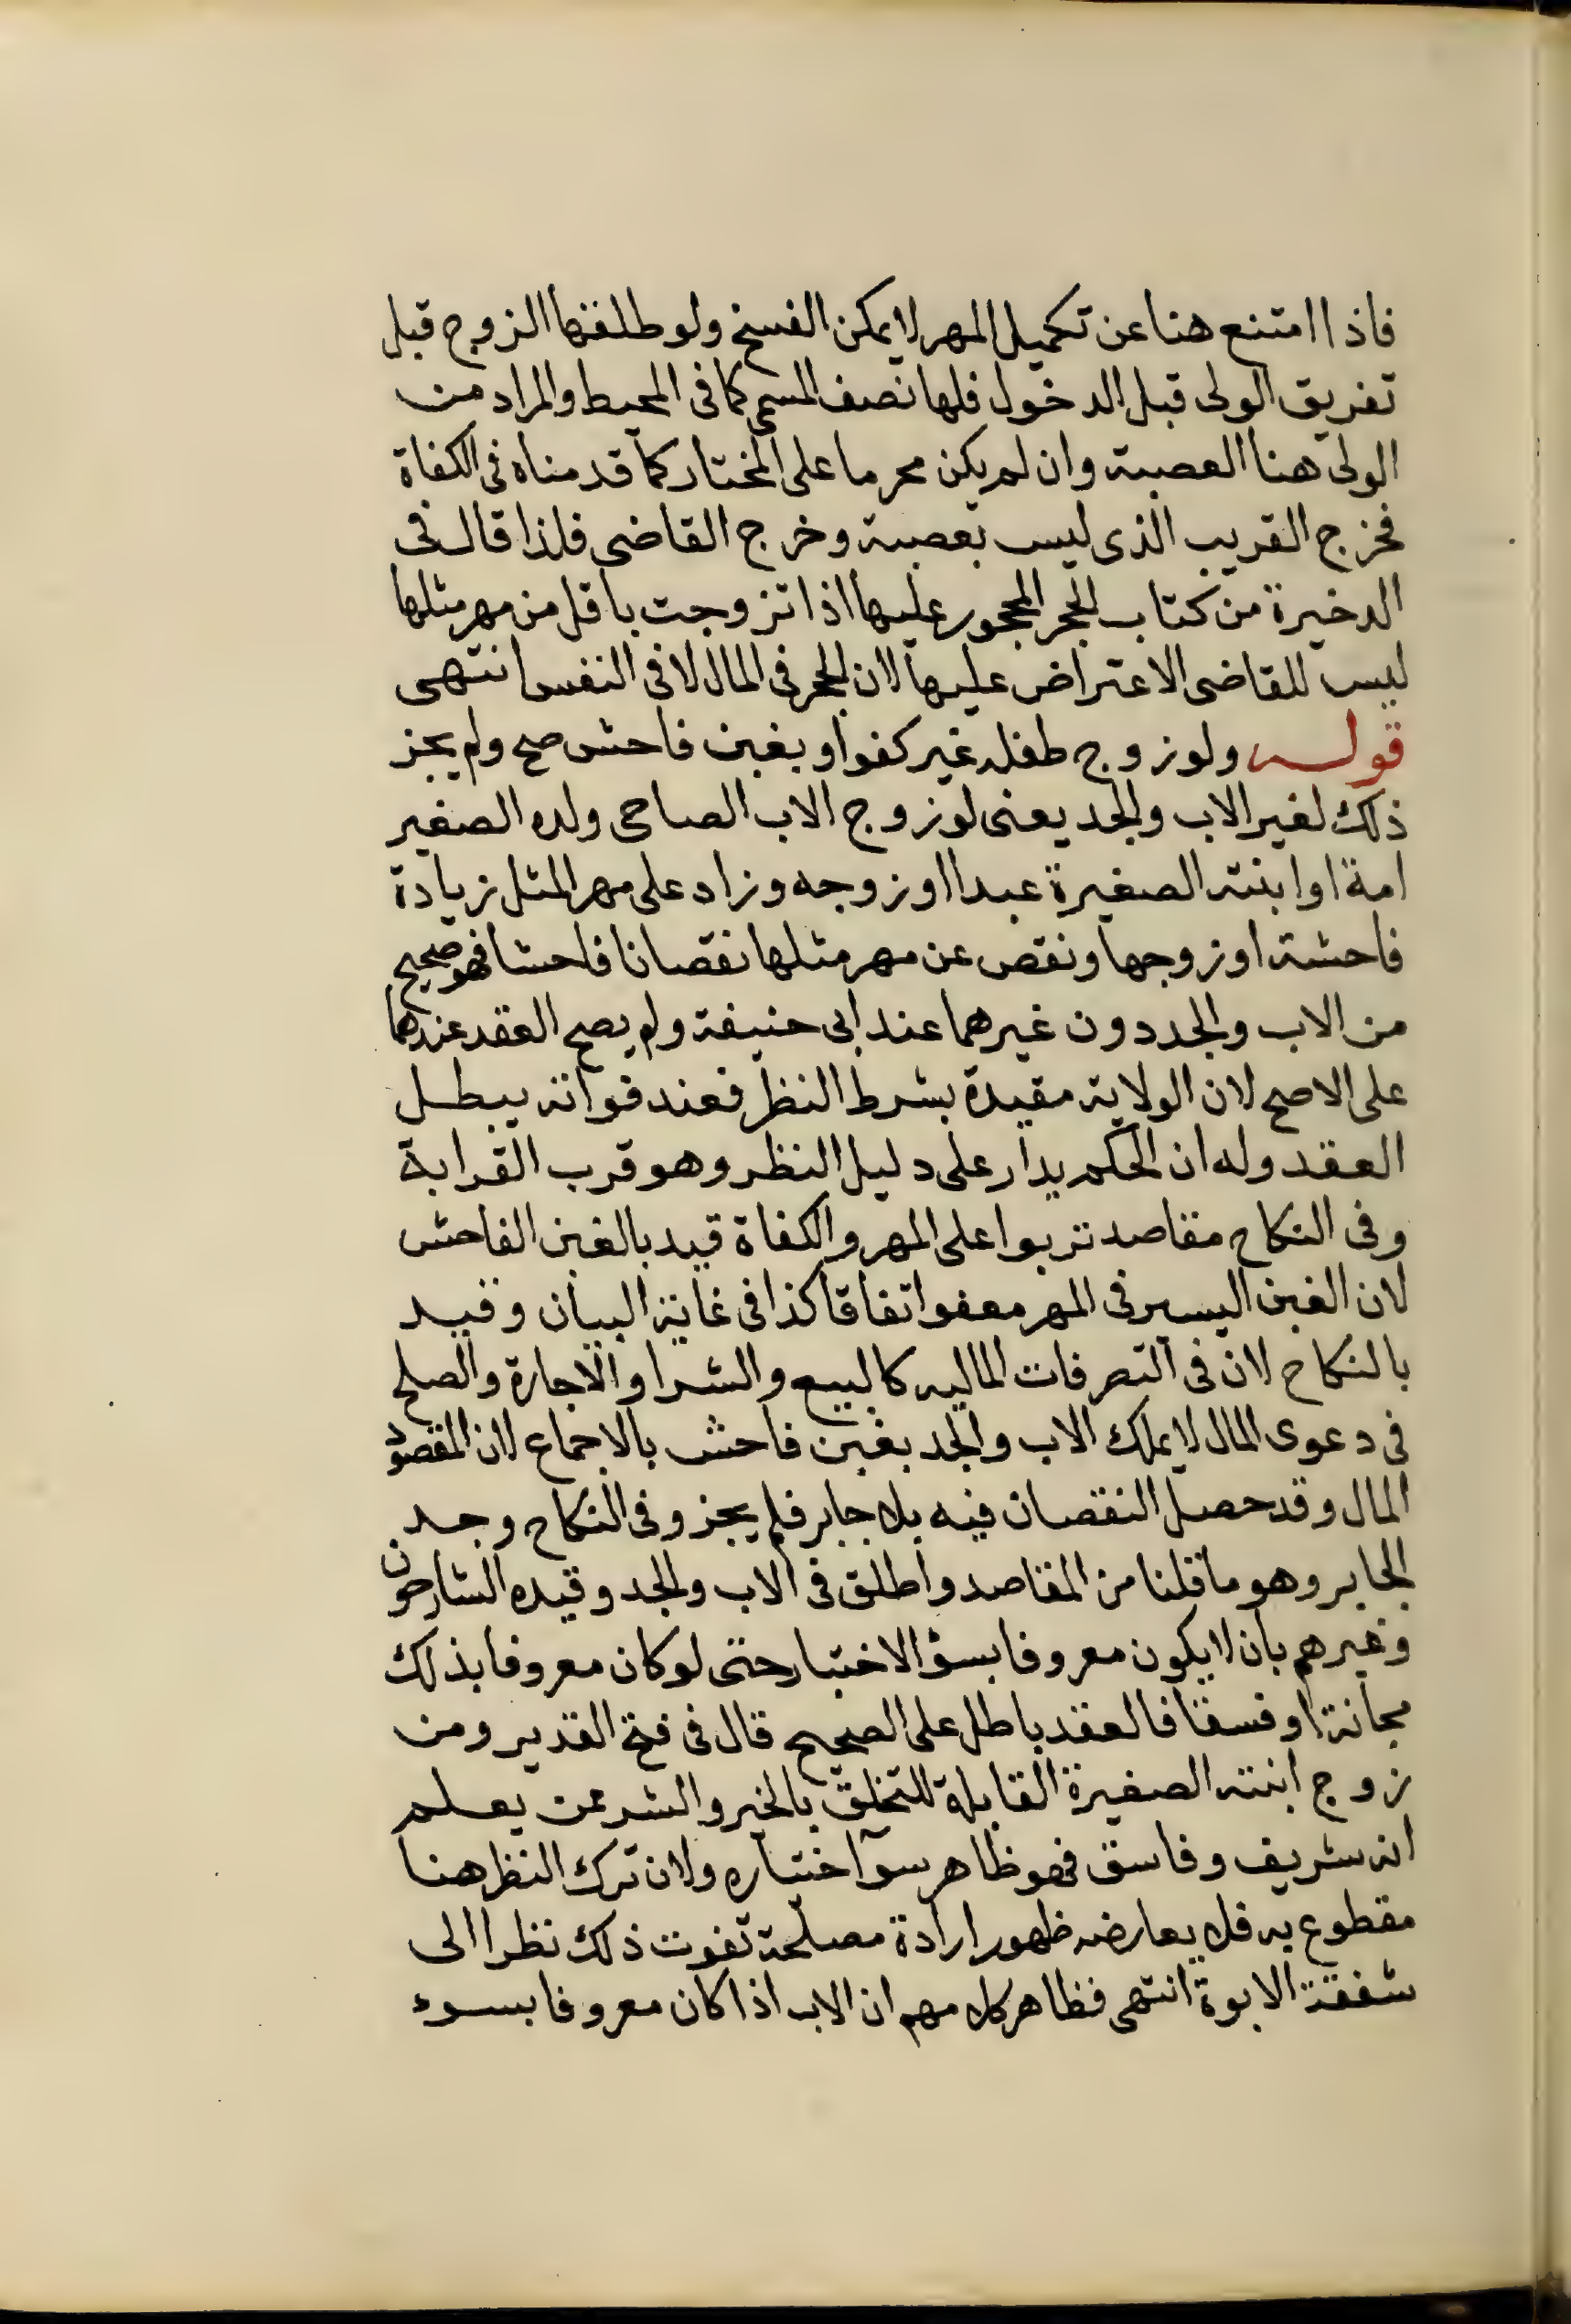 فاذا امتنع هنا عن تكميل المهر لا يمكن الفسخ ولو طلقها الزوج قبل
تفريق الولى قبل الدخول فلها نصف المسمى كما فى المحيط والمراد من
الولى هنا العصبة وان لم يكن محرما على المختار كما قدمناه فى الكفاة
فخرج القريب الذى ليس بعصبة وخرج القاضى فلذا قال فى
الدخيرة من كتاب الحجر المحجور عليها اذا تزوجت باقل من مهر مثلها
ليس للقاضى الاعتراض عليها لان الحجر فى المال لا فى النفس انتهى
قوله ولو زوج طفله غير كفوا وبغبن فاحش صح ولم يجز
ذلك لغير الاب والجد يعنى لو زوج الاب الصاحى ولده الصغير
امة او ابنته الصغيرة عبدا او زوجه وزاد على مهر المثل زيادة
فاحشة او زوجها ونقص عن مهر مثلها نقصانا فاحشا فهو صحيح
من الاب والجد دون غيرهما عند ابى حنيفة ولم يصح العقد عندهما
على الاصح لان الولاية مقيدة بشرط النظر فعند فواته يبطل
العقد وله ان الحكم يدار على دليل النظر وهو قرب القرابة
وفى النكاح مقاصد تربوا على المهر والكفاة قيد بالغبن الفاحش
لان الغبن اليسير فى المهر معفو اتفاقا كذا فى غاية البيان وقيد
بالنكاح لان فى التصرفات المالية كالبيع والشرا والاجارة والصلح
فى دعوى المال لا يملك الاب والجد بغبن فاحش بالاجماع لان المقصود
المال وقد حصل النقصان فيه بلا جابر فلم يجز وفى النكاح وجد
الجابر وهو ما قلنا من المقاصد واطلق فى الاب والجد وقيده الشارحون
وغيرهم بان لا يكون معروفا بسؤ الاختيار حتى لو كان معروفا بذلك
مجانة او فسقا فالعقد باطل على الصحيح قال فى فتح القدير ومن
زوج ابنته الصغيرة القابلة للتخلق بالخير والشر عمن يعلم
انه شريف وفاسق فهو ظاهر سوآ اختياره ولان ترك النظر هنا
مقطوع به فلا يعارضه ظهور ارادة مصلحة تفوت ذلك نظرا الى
شفقة الابوة انتهى فظاهر كلامهم ان الاب اذا كان معروفا بسوء